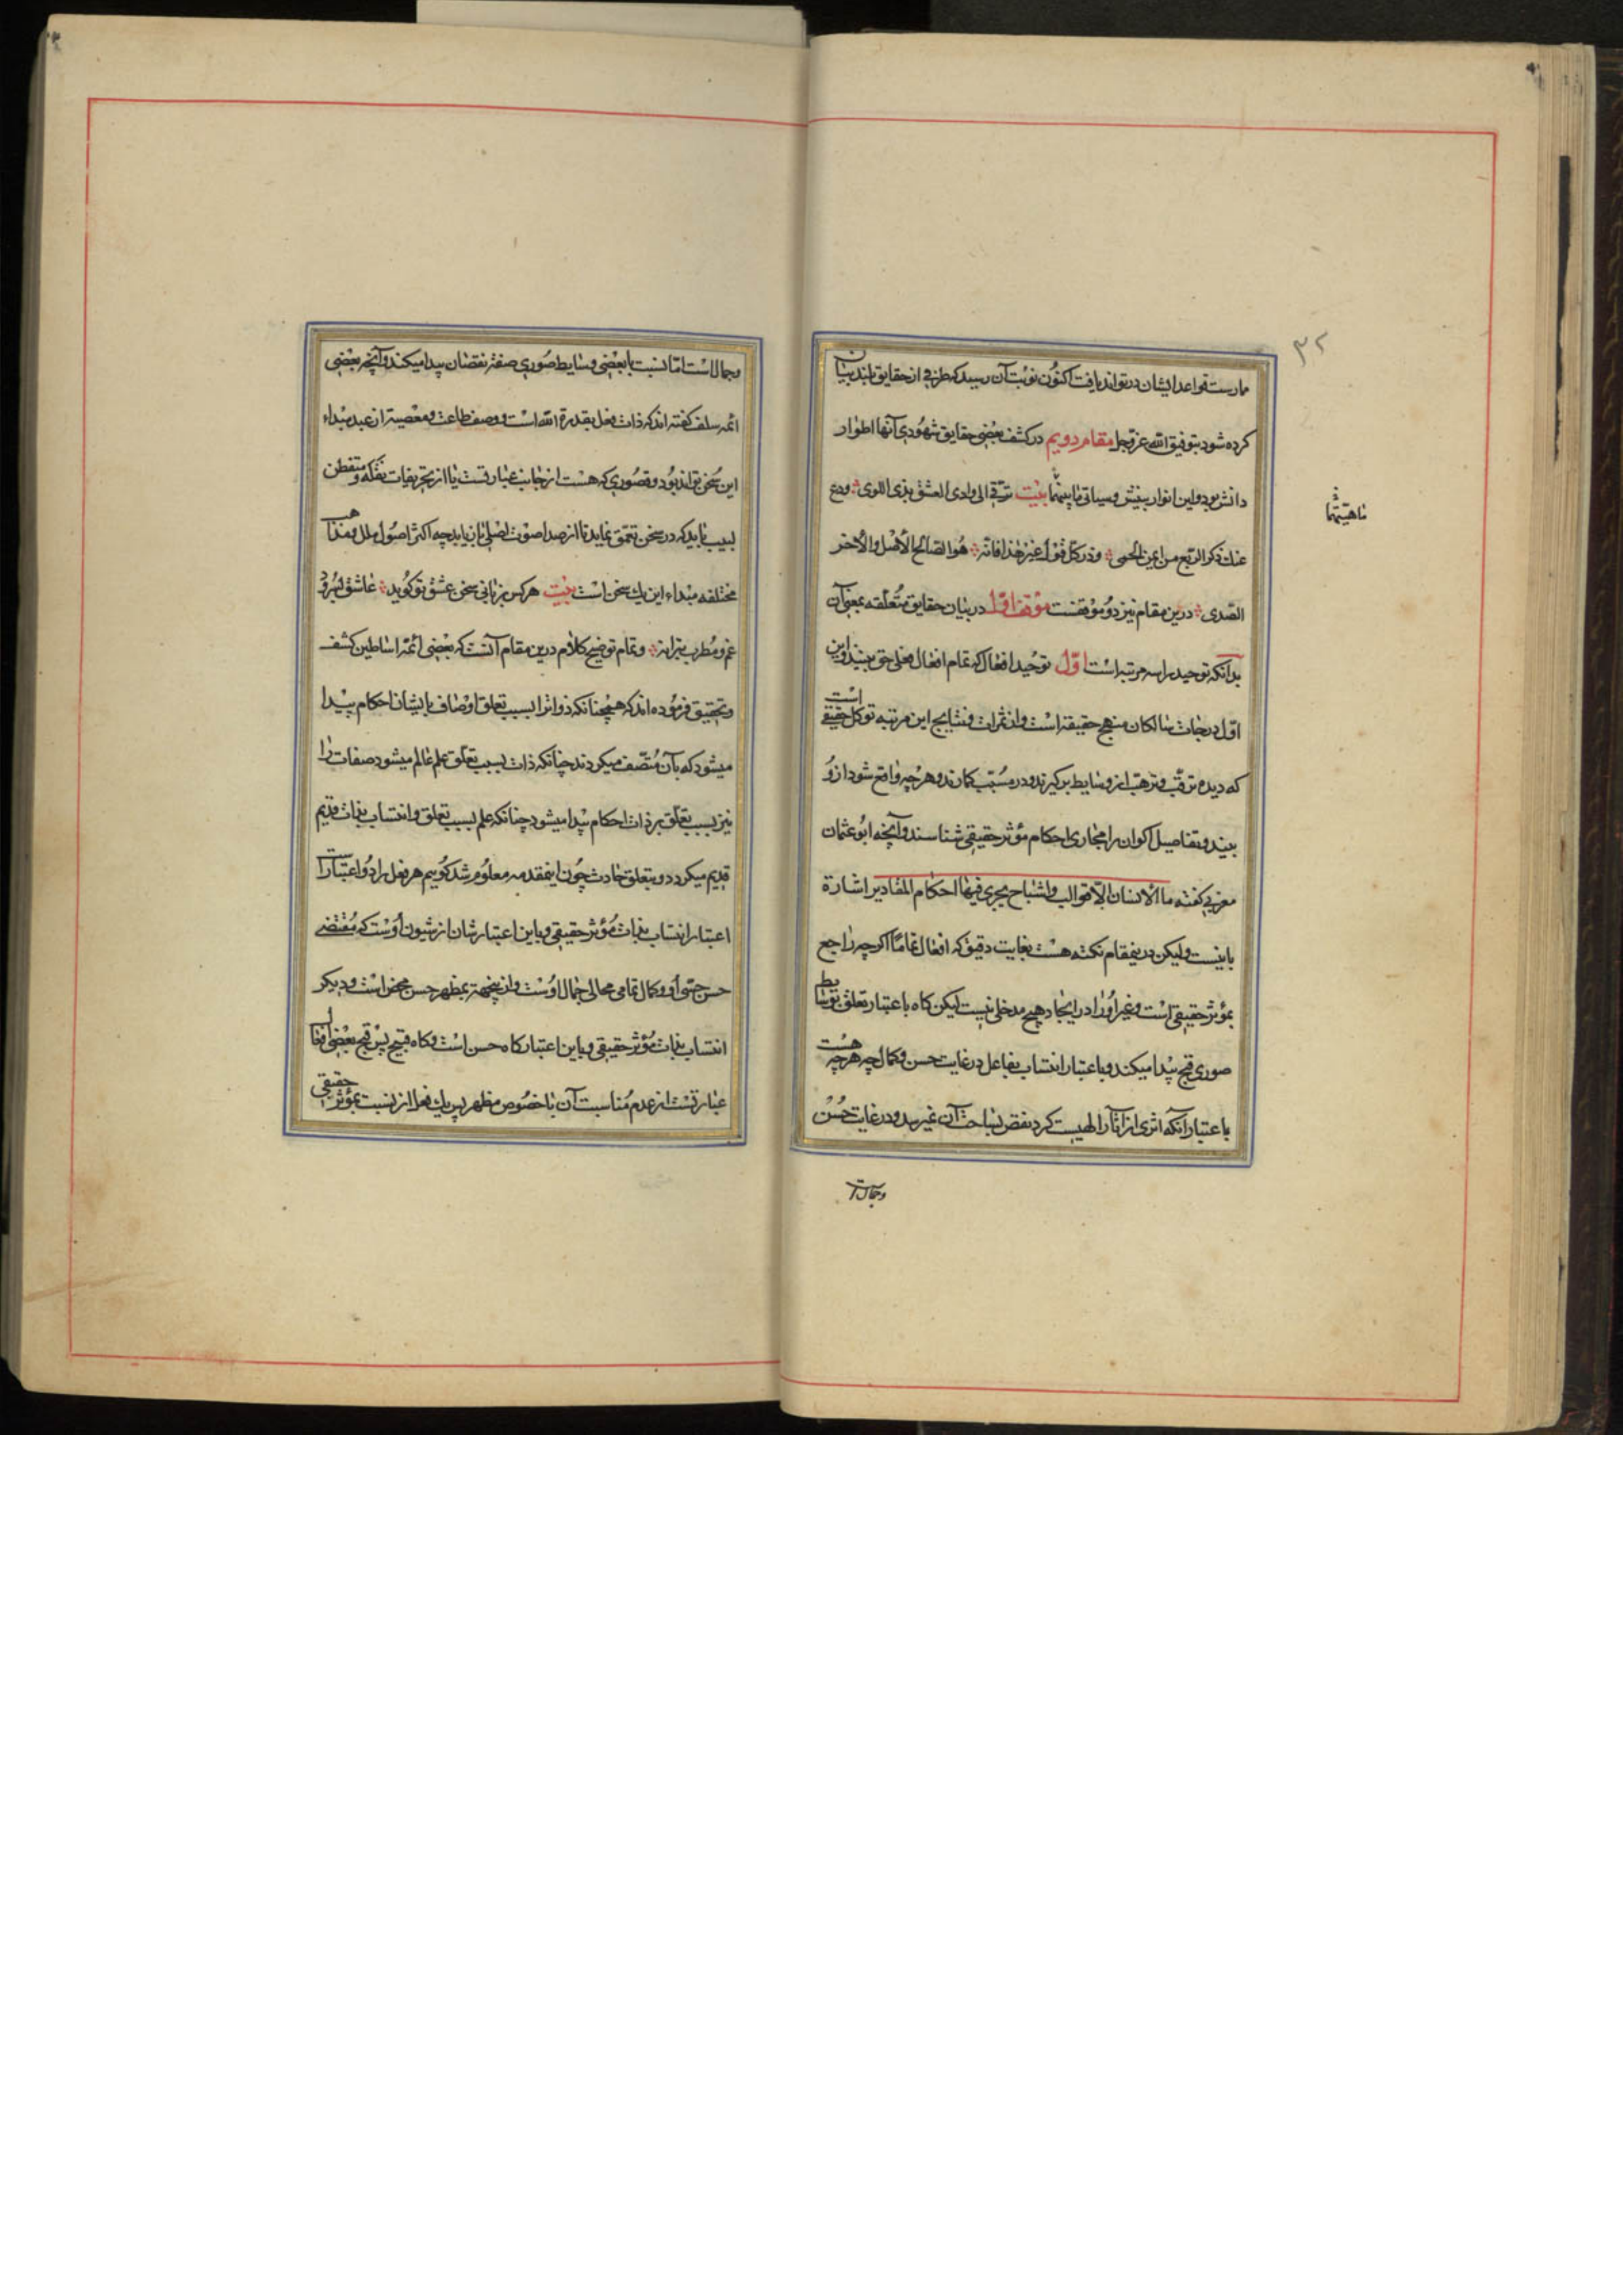 ۳۲
مارست قواعد ایشان در تواند یافت اکنون نوبت آن رسید که طرفی از حقایق بلند بنیان
کرده شود بتوفیق الله عز وجل مقام دویم در کشف بعضی حقایق شهودی آنها اطوار
دانش بود و این انوار بینش وسیاتی ما بینهما بیت ترقی الی وادی العشق بذی اللوی ودع
عنك ذکر الربع من ایمن الحمی وذر کل قول غیر هذا فانه هو الصالح الأصل والآخر
الصدی درین مقام نیز دو موقفست موقف اول در بیان حقایق متعلقه بمعنی آن
ماهیتهما
بدانکه توحید را سه مرتبه است اول توحید افعال که تمام افعال فعل حق بیند و این
اول درجات سالکان منهج حقیقة است و از ثمرات و نتایج این مرتبه توکل حقیقی است
که دیده ترقب و ترهب از وسایط برگیرند و در مسبب گمارند و هرچه واقع شود ازو
بینند و تفاصیل اکوان را مجاری احکام مؤثر حقیقی شناسند و آنچه ابو عثمان
مغربی گفته ما الانسان الا قوالب واشباح یجری فیها احکام المقادیر اشارة
باینست ولیکن درینمقام نکته هست بغایت دقیق که افعال تماما اگرچه راجع
بمؤثر حقیقی است و غیر او را در ایجاد هیچ مدخلی نیست لیکن گاه باعتبار تعلق بوسایط
صوری قبح پیدا میکند و باعتبار انتساب بفاعل در غایت حسن و کمال چه هرچه هست
باعتبار آنکه اثری از آثار الهیست گرد نقص بساحت آن نمیرسد و در غایت حسن
وجمال است
وجمال است اما نسبت با بعضی وسایط صوری صفة نقصان پیدا میکند و آنچه بعضی
ائمه سلف گفته اند که ذات فعل بقدرة الله است و وصف طاعت و معصیة از عبد مبداء
این سخن تواند بود و قصوری که هست از جانب عبارتست یا از تحریفات نقله و متفطن
لبیب باید که در سخن تعمق نماید تا از صدا صوت اصلی باز یابد چه اکثر اصول ملل و مذاهب
مختلفه مبداء این یك سخن است بیت هرکس بزبانی سخن عشق تو گوید عاشق بسرود
غم و مطرب بترانه و تمام توضیح کلام درین مقام آنست که بعضی ائمه اساطین کشف
وتحقیق فرموده اند که همچنانکه ذوات را بسبب تعلق اوصاف بایشان احکام پیدا
میشود که بآن متصف میگردند چنانکه ذات بسبب تعلق علم عالم میشود صفات را
نیز بسبب تعلق بر ذات احکام پیدا میشود چنانکه علم بسبب تعلق و انتساب بذات قدیم
قدیم میگردد و بتعلق حادث چون اینمقدمه معلوم شد گوییم هر فعل را دو اعتبار است
اعتبار انتساب بذات مؤثر حقیقی و باین اعتبار شان از شیون اوست که مقتضی
حسن جبتی او و کمال تمامی مجالی جمال اوست و از ینجهة بمظهر حسن محض است و دیگر
انتساب بذات مؤثر حقیقی و باین اعتبار گاه حسن است و گاه قبیح پس قبح بعضی افعال
عبارتست از عدم مناسبت آن با خصوص مظهر پس یك فعل از نسبت بمؤثر حقیقی